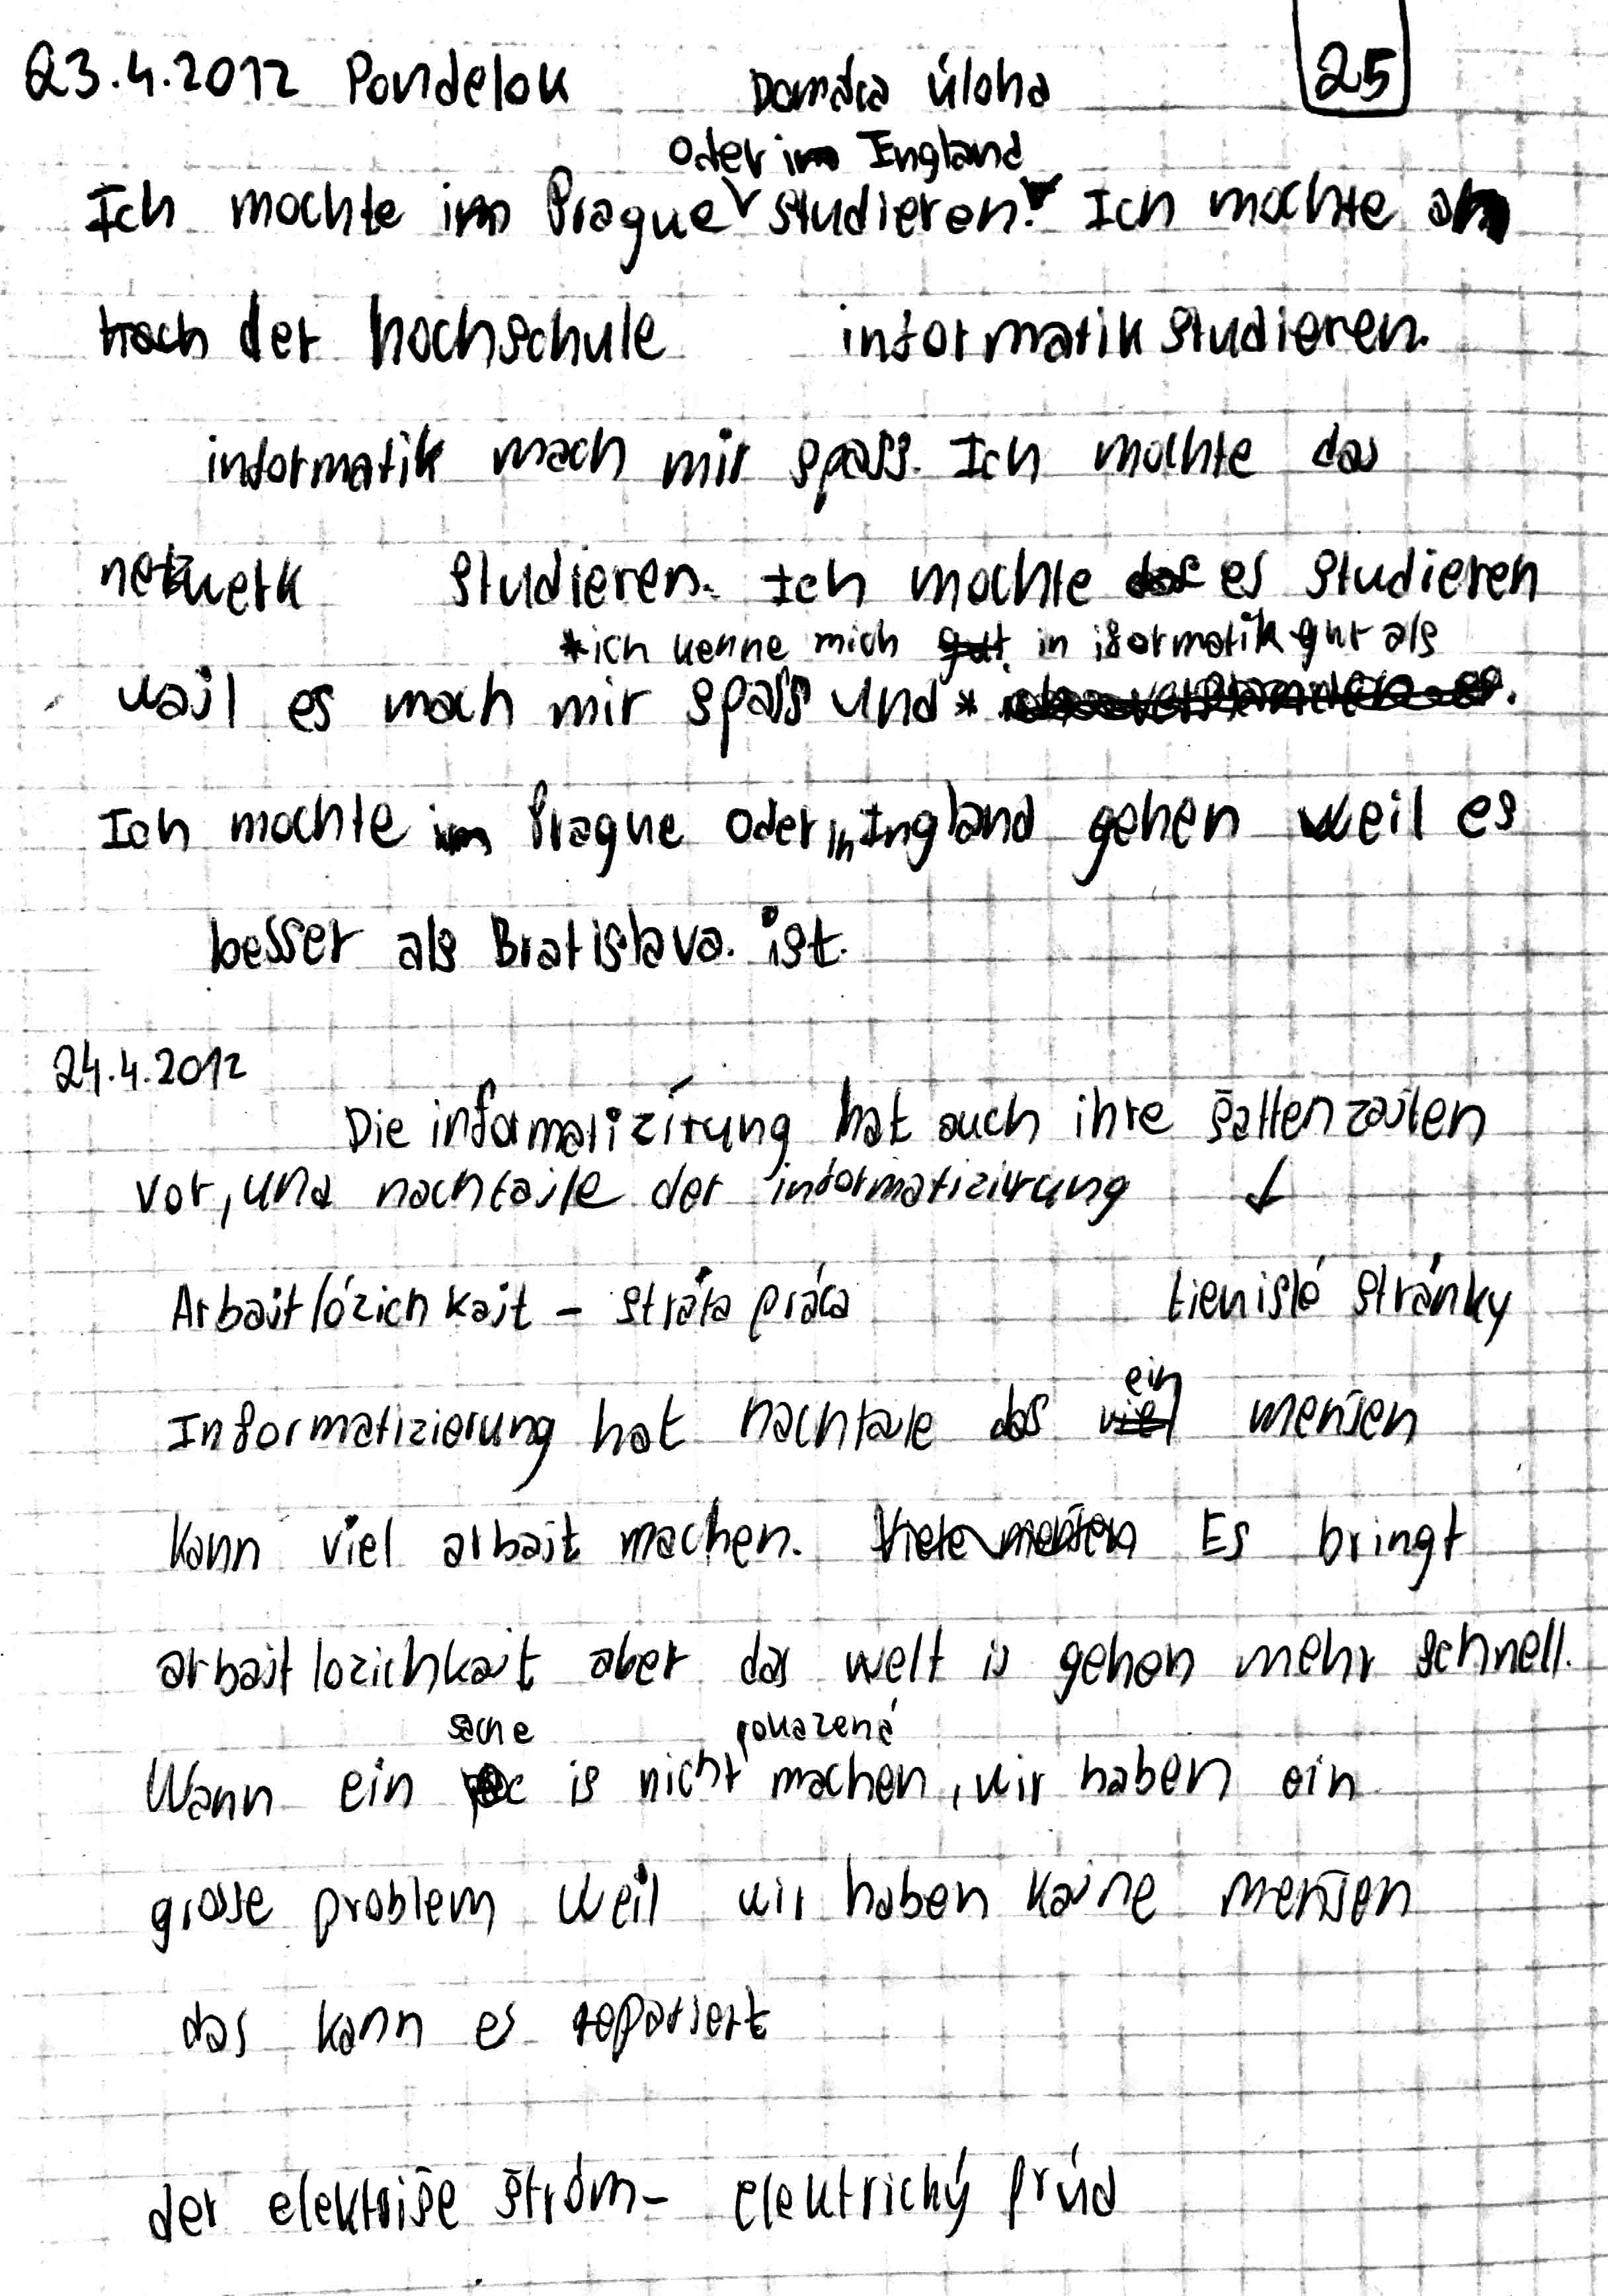 23.4.2012 Pondelok Domáca úloha 25
oder im England
Ich mochte im Prague studieren. Ich mochte an
hoch der hochschule informatik studieren.
informatik mach mir spass. Ich mochte das
netzwerk studieren. Ich mochte das es studieren
*ich kenne mich gut in iformatik gut als
wajl es mach mir spass und *
Ich mochte im Prague oder in England gehen weil es
besser als Bratislava. ist.
24.4.2012
Die informatizírung hat auch ihre šattenzajten
vor, und nachtajle der informatizirung ↓
Arbajtlózichkajt - stráta práca tienisté stránky
ein
Informatizierung hat nachtajle das viel menšen
kann viel arbajt machen. Viele menšen Es bringt
arbajtlozichkajt aber das welt is gehen mehr schnell.
sache pokazená
Wann ein is nicht machen, wir haben ein
grosse problem weil wir haben kajne menšen
das kann es repariert
der elektriše štróm - elektrický prúd